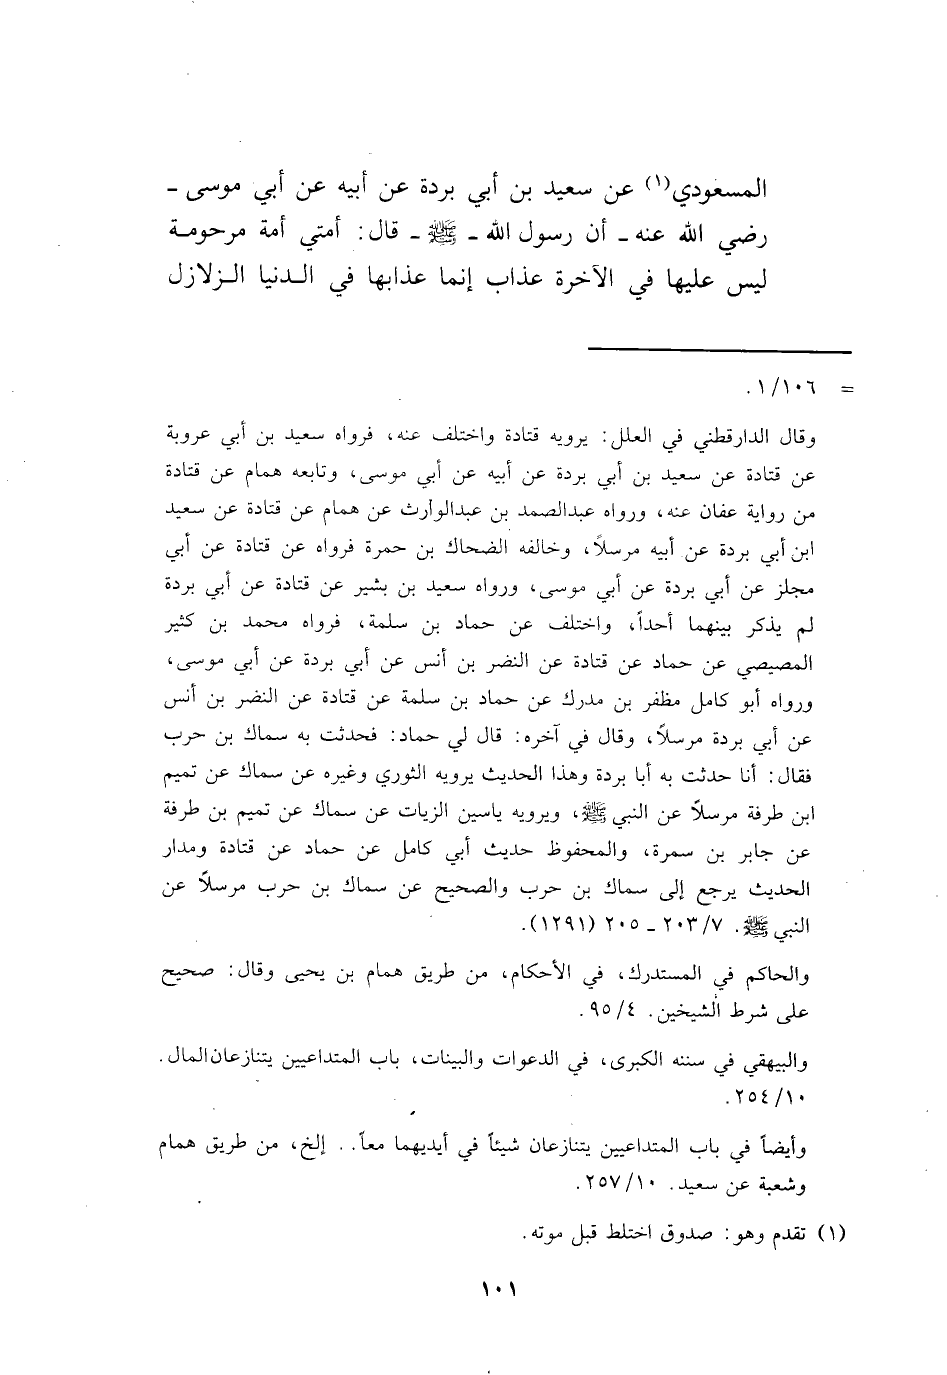 المسعودي(١) عن سعيد بن أبي بردة عن أبيه عن أبي موسى ـ
رضي الله عنه ـ أن رسول الله ـ ﷺ ـ قال: أمتي أمة مرحومة
ليس عليها في الآخرة عذاب إنما عذابها في الدنيا الزلازل
= ١/١٠٦.
وقال الدارقطني في العلل: يرويه قتادة واختلف عنه، فرواه سعيد بن أبي عروبة
عن قتادة عن سعيد بن أبي بردة عن أبيه عن أبي موسى، وتابعه همام عن قتادة
من رواية عفان عنه، ورواه عبدالصمد بن عبدالوارث عن همام عن قتادة عن سعيد
ابن أبي بردة عن أبيه مرسلاً، وخالفه الضحاك بن حمرة فرواه عن قتادة عن أبي
مجلز عن أبي بردة عن أبي موسى، ورواه سعيد بن بشير عن قتادة عن أبي بردة
لم يذكر بينهما أحداً، واختلف عن حماد بن سلمة، فرواه محمد بن كثير
المصيصي عن حماد عن قتادة عن النضر بن أنس عن أبي بردة عن أبي موسى،
ورواه أبو كامل مظفر بن مدرك عن حماد بن سلمة عن قتادة عن النضر بن أنس
عن أبي بردة مرسلاً، وقال في آخره: قال لي حماد: فحدثت به سماك بن حرب
فقال: أنا حدثت به أبا بردة وهذا الحديث يرويه الثوري وغيره عن سماك عن تميم
ابن طرفة مرسلاً عن النبي ﷺ، ويرويه ياسين الزيات عن سماك عن تميم بن طرفة
عن جابر بن سمرة، والمحفوظ حديث أبي كامل عن حماد عن قتادة ومدار
الحديث يرجع إلى سماك بن حرب والصحيح عن سماك بن حرب مرسلاً عن
النبي ﷺ. ٢٠٣/٧ ـ ٢٠٥ (١٢٩١).
والحاكم في المستدرك، في الأحكام، من طريق همام بن يحيى وقال: صحيح
على شرط الشيخين. ٩٥/٤.
والبيهقي في سننه الكبرى، في الدعوات والبينات، باب المتداعيين يتنازعان المال.
٢٥٤/١٠.
وأيضاً في باب المتداعيين يتنازعان شيئاً في أيديهما معاً.. إلخ، من طريق همام
وشعبة عن سعيد. ٢٥٧/١٠.
(١) تقدم وهو: صدوق اختلط قبل موته.
١٠١